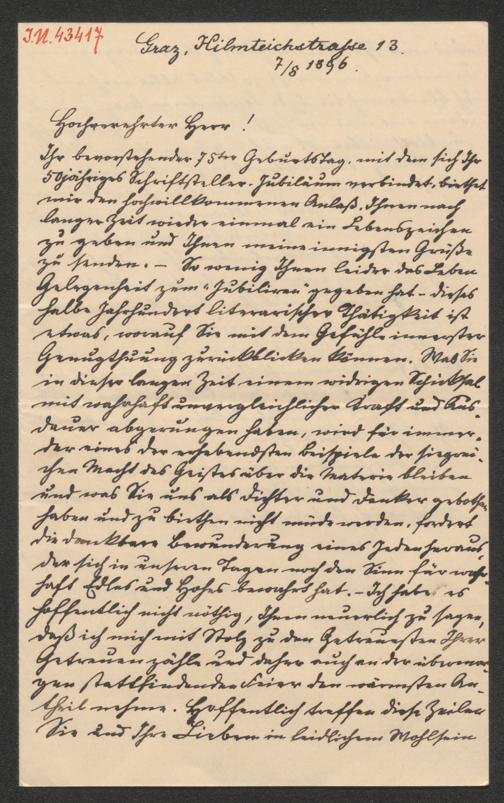 I.N. 43417
Graz, Hilmteichstrasse 13.
7/8 1896.
Hochverehrter Herr!
Ihr bevorstehender 75ter Geburtstag, mit dem sich Ihr
50jähriges Schriftsteller-Jubiläum verbindet, bietet
mir den hochwillkommenen Anlaß, Ihnen nach
langer Zeit wieder einmal ein Lebenszeichen
zu geben und Ihnen meine innigsten Grüße
zu senden. – So wenig Ihnen leider das Leben
Gelegenheit zum „Jubiliren" gegeben hat – dieses
halbe Jahrhundert literarischer Thätigkeit ist
etwas, worauf Sie mit dem Gefühle innerster
Genugthuung zurückblicken können. Was Sie
in dieser langen Zeit einem widrigen Schicksal
mit wahrhaft unvergleichlicher Kraft und Aus-
dauer abgerungen haben, wird für immer
der eines der erhebendsten Beispiele der siegrei-
chen Macht des Geistes über die Materie bleiben
und was Sie uns als Dichter und Denker gebothen
haben und zu biethen nicht müde werden, fordert
die dankbare Bewunderung eines Jeden heraus,
der sich in unseren Tagen noch den Sinn für wahr-
haft Edles und Hohes bewahrt hat. – Ich habe es
hoffentlich nicht nöthig, Ihnen neuerlich zu sagen,
daß ich mich mit Stolz zu den Getreuesten Ihrer
Getreuen zähle und daher auch an der übermor-
gen stattfindenden Feier den wärmsten An-
theil nehme. Hoffentlich treffen diese Zeilen
Sie und Ihre Lieben in leidlichem Wohlsein